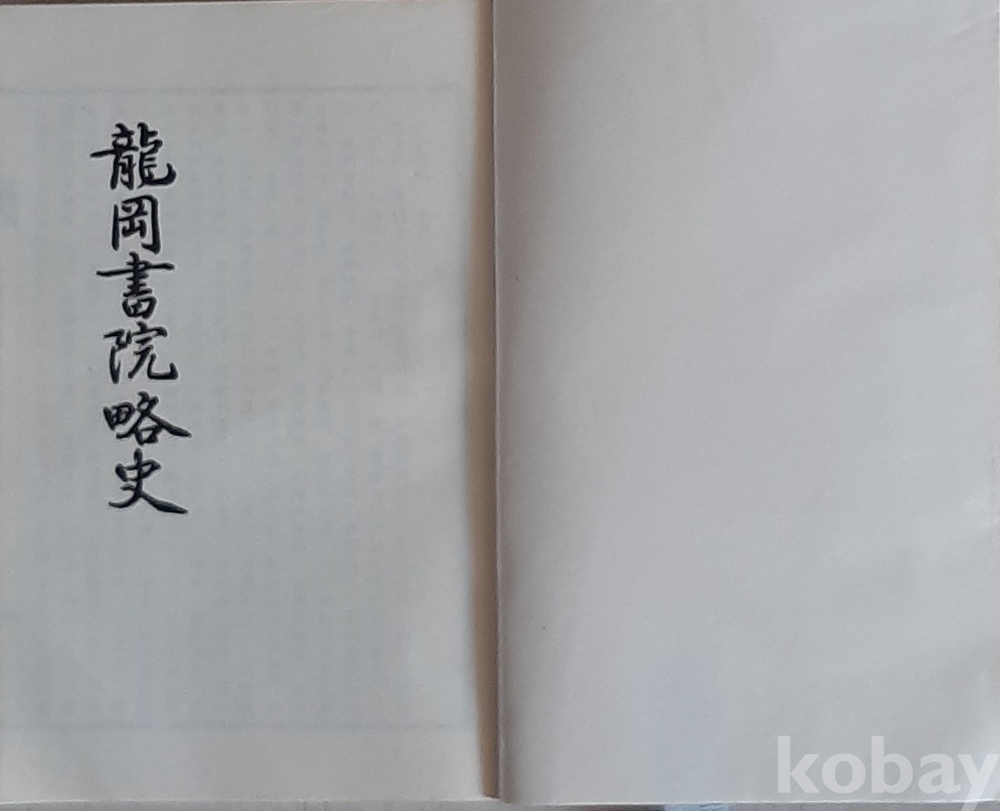 龍岡書院略史
kobay